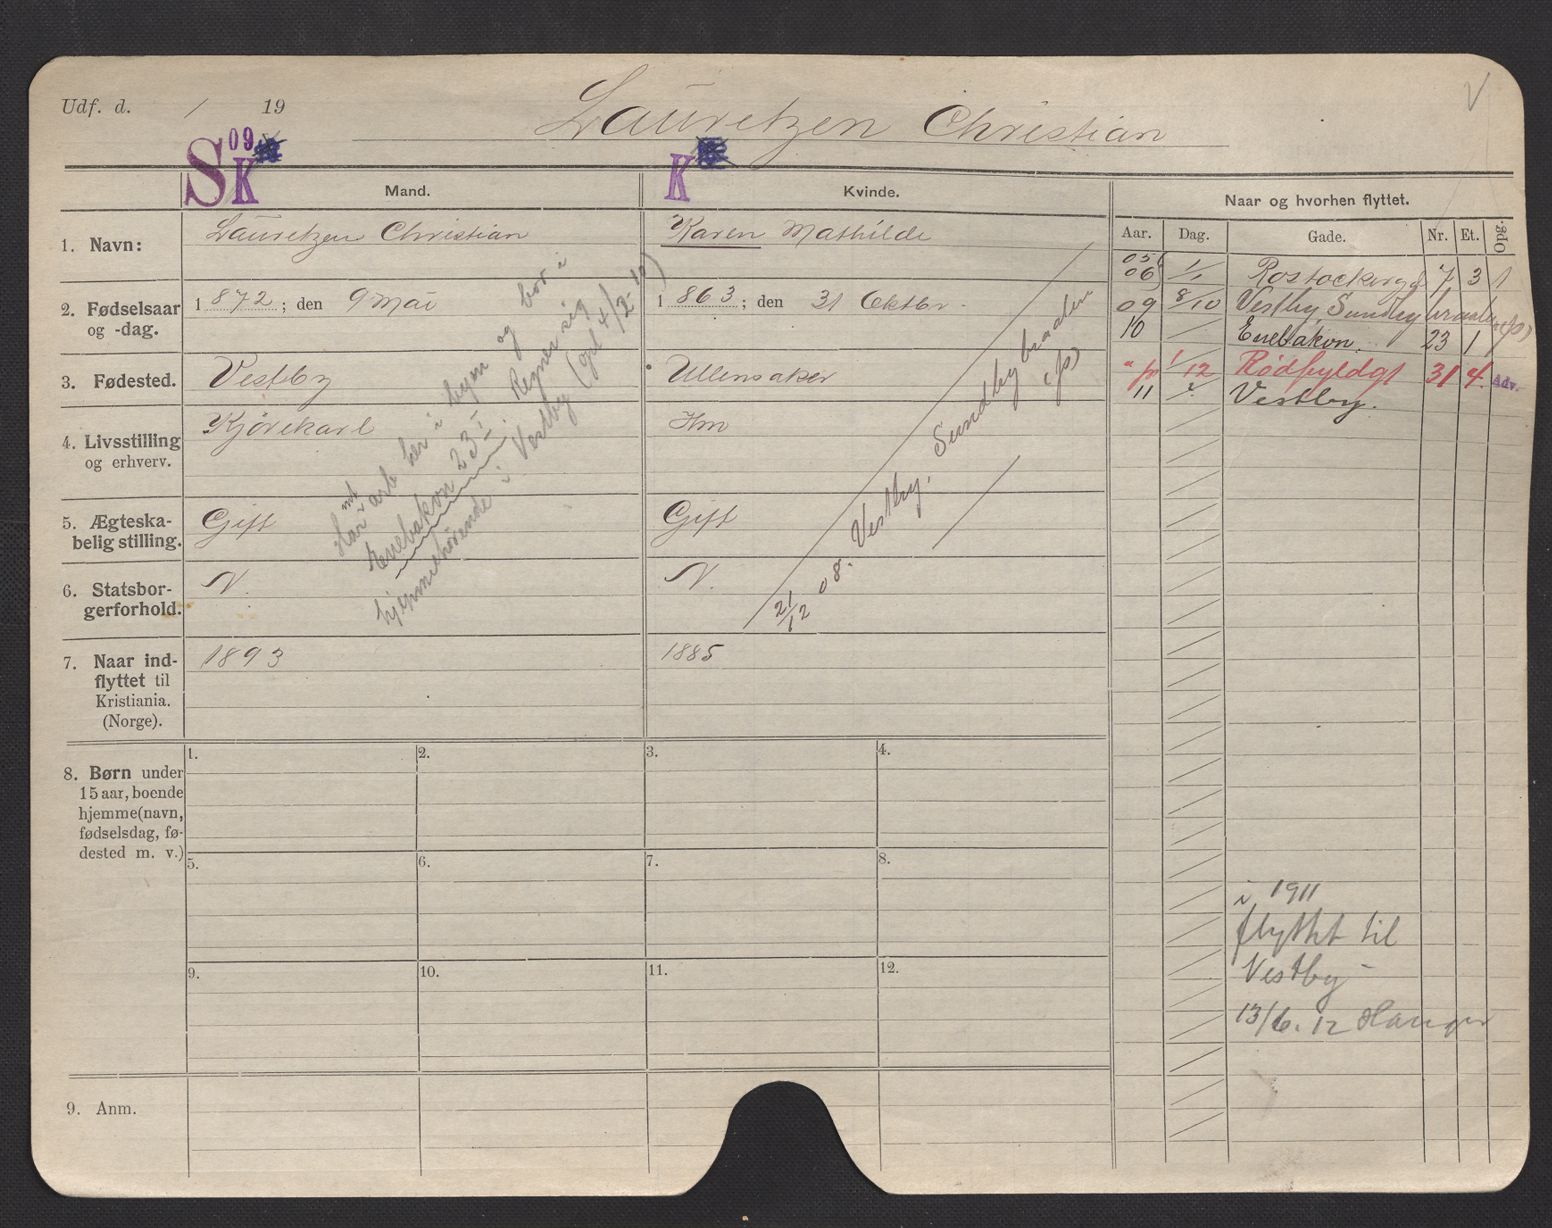 Udf. d. / 19
Lauritzen Christian
V
S K 09
K
Mand.
Kvinde.
Naar og hvorhen flyttet.
Aar. Dag. Gade. Nr. Et. Opg.
1. Navn: Lauritzen Christian
Karen Mathilde
2. Fødselsaar og -dag. 1872; den 9 Mai
1863; den 31 Oktbr.
3. Fødested. Vestby
Ullensaker
4. Livsstilling og erhverv. Kjørekarl
Hm
5. Ægteska-
belig stilling. Gift
Gift
6. Statsbor-
gerforhold. N.
N.
7. Naar ind-
flyttet til
Kristiania.
(Norge). 1893
1885
Han arb her i byen og bor i
Enebakvn 23 I. Regner sig
hjemmehørende i Vestby (gpl 4/2-10)
21/12 08. Vestby, Sundbybraaten
(fs)
05
06 1/1 Rostockergd 7 3 1
09 8/10 Vestby, Sundbybraaten (fs)
10 Enebakvn. 23 1
" fr 1/12 Rødfyldgt 31 4. Adv.
11 ? Vestby.
8. Børn under
15 aar, boende
hjemme (navn,
fødselsdag, fø-
dested m. v.)
1. 2. 3. 4.
5. 6. 7. 8.
9. 10. 11. 12.
i 1911
flyttet til
Vestby
13/6. 12 Hauger
9. Anm.